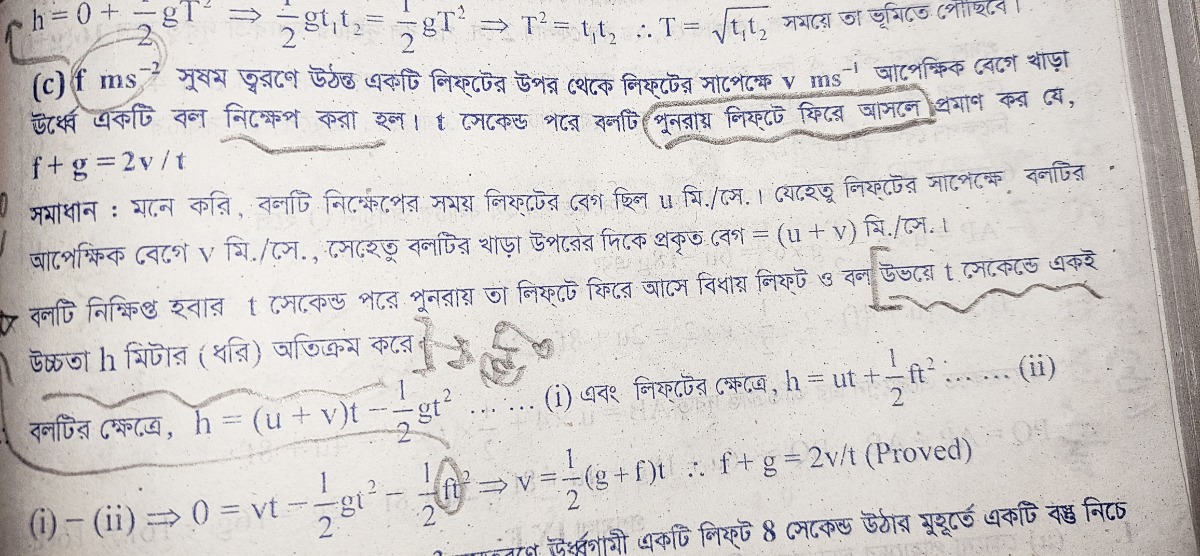 h = 0 + 1/2 gT² ⇒ 1/2 gt₁t₂ = 1/2 gT² ⇒ T² = t₁t₂ ∴ T = √t₁t₂ সময়ে তা ভূমিতে পৌছিবে।
(c) f ms⁻² সুষম ত্বরণে উঠন্ত একটি লিফ্‌টের উপর থেকে লিফ্‌টের সাপেক্ষে v ms⁻¹ আপেক্ষিক বেগে খাড়া
উর্ধ্বে একটি বল নিক্ষেপ করা হল। t সেকেন্ড পরে বলটি পুনরায় লিফ্‌টে ফিরে আসলে প্রমাণ কর যে,
f + g = 2v / t
সমাধান : মনে করি, বলটি নিক্ষেপের সময় লিফ্‌টের বেগ ছিল u মি./সে.। যেহেতু লিফ্‌টের সাপেক্ষে বলটির
আপেক্ষিক বেগে v মি./সে., সেহেতু বলটির খাড়া উপরের দিকে প্রকৃত বেগ = (u + v) মি./সে.।
বলটি নিক্ষিপ্ত হবার t সেকেন্ড পরে পুনরায় তা লিফ্‌টে ফিরে আসে বিধায় লিফ্‌ট ও বল উভয়ে t সেকেন্ডে একই
উচ্চতা h মিটার (ধরি) অতিক্রম করে।
বলটির ক্ষেত্রে, h = (u + v)t − 1/2 gt² ... ... (i) এবং লিফ্‌টের ক্ষেত্রে, h = ut + 1/2 ft² ... ... (ii)
(i) − (ii) ⇒ 0 = vt − 1/2 gt² − 1/2 ft² ⇒ v = 1/2 (g + f)t ∴ f + g = 2v/t (Proved)
উর্ধ্বগামী একটি লিফ্‌ট 8 সেকেন্ড উঠার মুহূর্তে একটি বস্তু নিচে